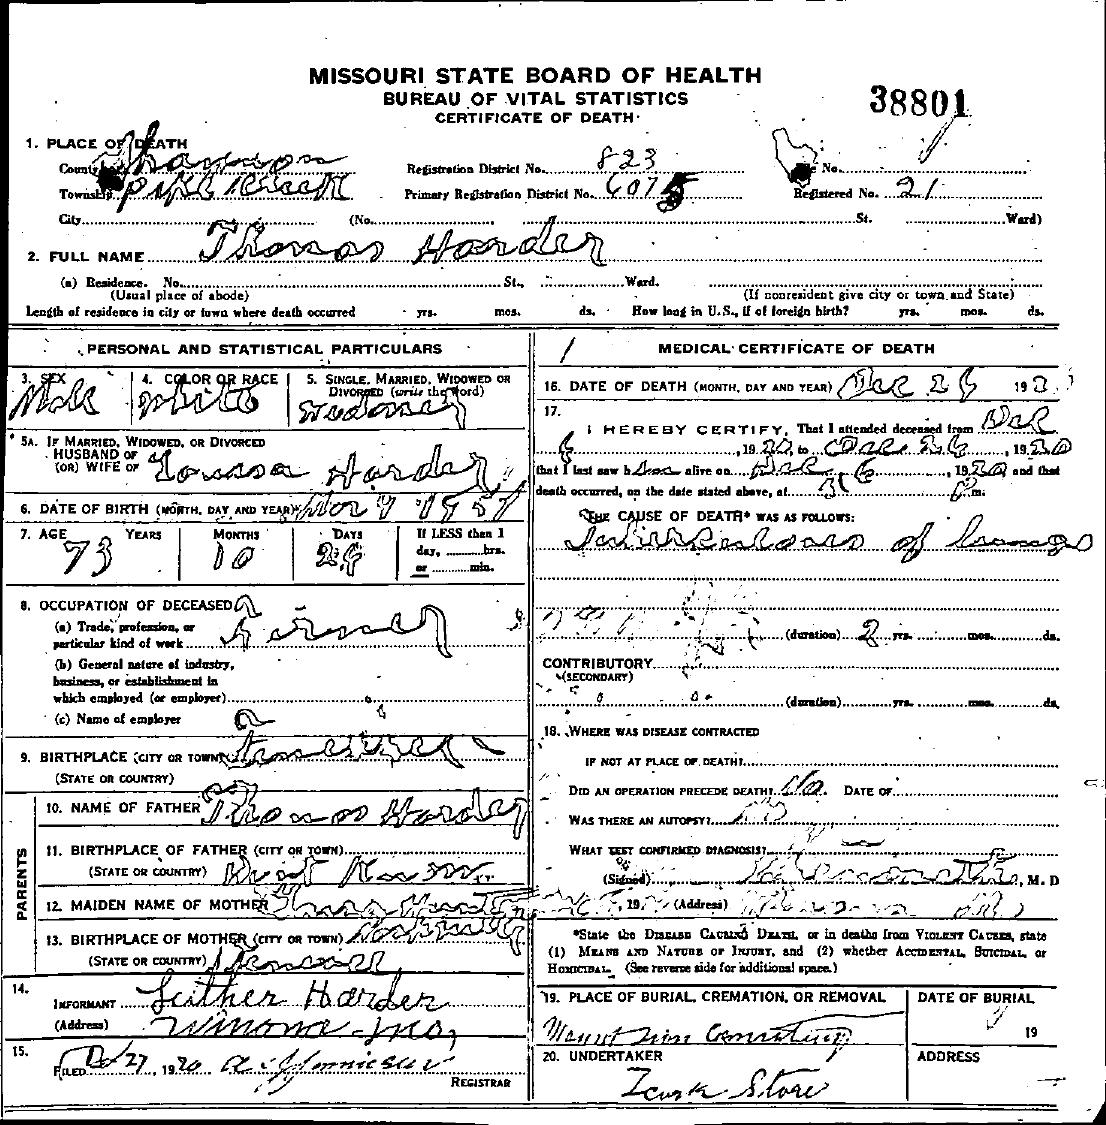 MISSOURI STATE BOARD OF HEALTH
BUREAU OF VITAL STATISTICS
CERTIFICATE OF DEATH
38801
1. PLACE OF DEATH
County Shannon Registration District No. 823 No.
Township Registration District No. 6075 Registered No. 21
City (No. St. Ward)
2. FULL NAME Thomas Harder
(a) Residence. No. St., Ward.
(Usual place of abode) (If nonresident give city or town and State)
Length of residence in city or town where death occurred yrs. mos. ds. How long in U.S., if of foreign birth? yrs. mos. ds.
PERSONAL AND STATISTICAL PARTICULARS
3. SEX Male
4. COLOR OR RACE White
5. SINGLE, MARRIED, WIDOWED OR DIVORCED (write the word)
5A. IF MARRIED, WIDOWED, OR DIVORCED
HUSBAND OF
(OR) WIFE OF Harder
6. DATE OF BIRTH (MONTH, DAY AND YEAR)
7. AGE YEARS MONTHS DAYS If LESS then 1
73 10 day, hrs.
or min.
8. OCCUPATION OF DECEASED
(a) Trade, profession, or
particular kind of work Farmer
(b) General nature of industry,
business, or establishment in
which employed (or employer)
(c) Name of employer
9. BIRTHPLACE (CITY OR TOWN)
(STATE OR COUNTRY)
PARENTS
10. NAME OF FATHER Thomas Harder
11. BIRTHPLACE OF FATHER (CITY OR TOWN)
(STATE OR COUNTRY) Dont Know
12. MAIDEN NAME OF MOTHER
13. BIRTHPLACE OF MOTHER (CITY OR TOWN)
(STATE OR COUNTRY)
14.
INFORMANT Luther Harder
(Address) Winona Mo,
15.
FILED Dec 27, 1920
REGISTRAR
MEDICAL CERTIFICATE OF DEATH
16. DATE OF DEATH (MONTH, DAY AND YEAR) Dec 26 192
17.
I HEREBY CERTIFY, That I attended deceased from Dec
6, 1920, to Dec 26, 1920
that I last saw h alive on Dec 6, 1920 and that
death occurred, on the date stated above, at m.
THE CAUSE OF DEATH* WAS AS FOLLOWS:
Tuberculosis of lungs
(duration) 2 yrs. mos. ds.
CONTRIBUTORY
(SECONDARY)
(duration) yrs. mos. ds.
18. WHERE WAS DISEASE CONTRACTED
IF NOT AT PLACE OF DEATH?
DID AN OPERATION PRECEDE DEATH? No. DATE OF
WAS THERE AN AUTOPSY? No
WHAT TEST CONFIRMED DIAGNOSIS?
(Signed) , M. D
, 19 (Address)
*State the DISEASE CAUSING DEATH, or in deaths from VIOLENT CAUSES, state
(1) MEANS AND NATURE OF INJURY, and (2) whether ACCIDENTAL, SUICIDAL, or
HOMICIDAL. (See reverse side for additional space.)
19. PLACE OF BURIAL, CREMATION, OR REMOVAL
Mount Zion Cemetery
DATE OF BURIAL
19
20. UNDERTAKER
Store
ADDRESS